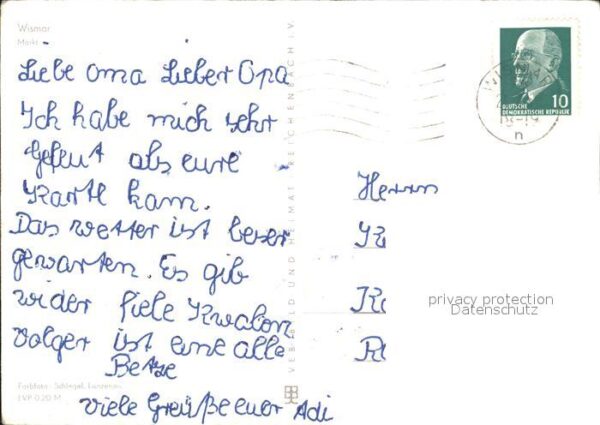 Wismar
Markt
Liebe Oma Lieber Opa
Ich habe mich sehr
gefeut als eure
Karte kam.
Das wetter ist beser
gewarten. Es gib
wider fiele Kwalon
Volger ist eine alle
Betze
viele Greüße euer Adi
Farbfoto: Schlegel, Lunzenau
EVP 0,20 M
VEB BILD UND HEIMAT REICHENBACH I.V.
DEUTSCHE
DEMOKRATISCHE REPUBLIK
10
n
Herrn
privacy protection
Datenschutz